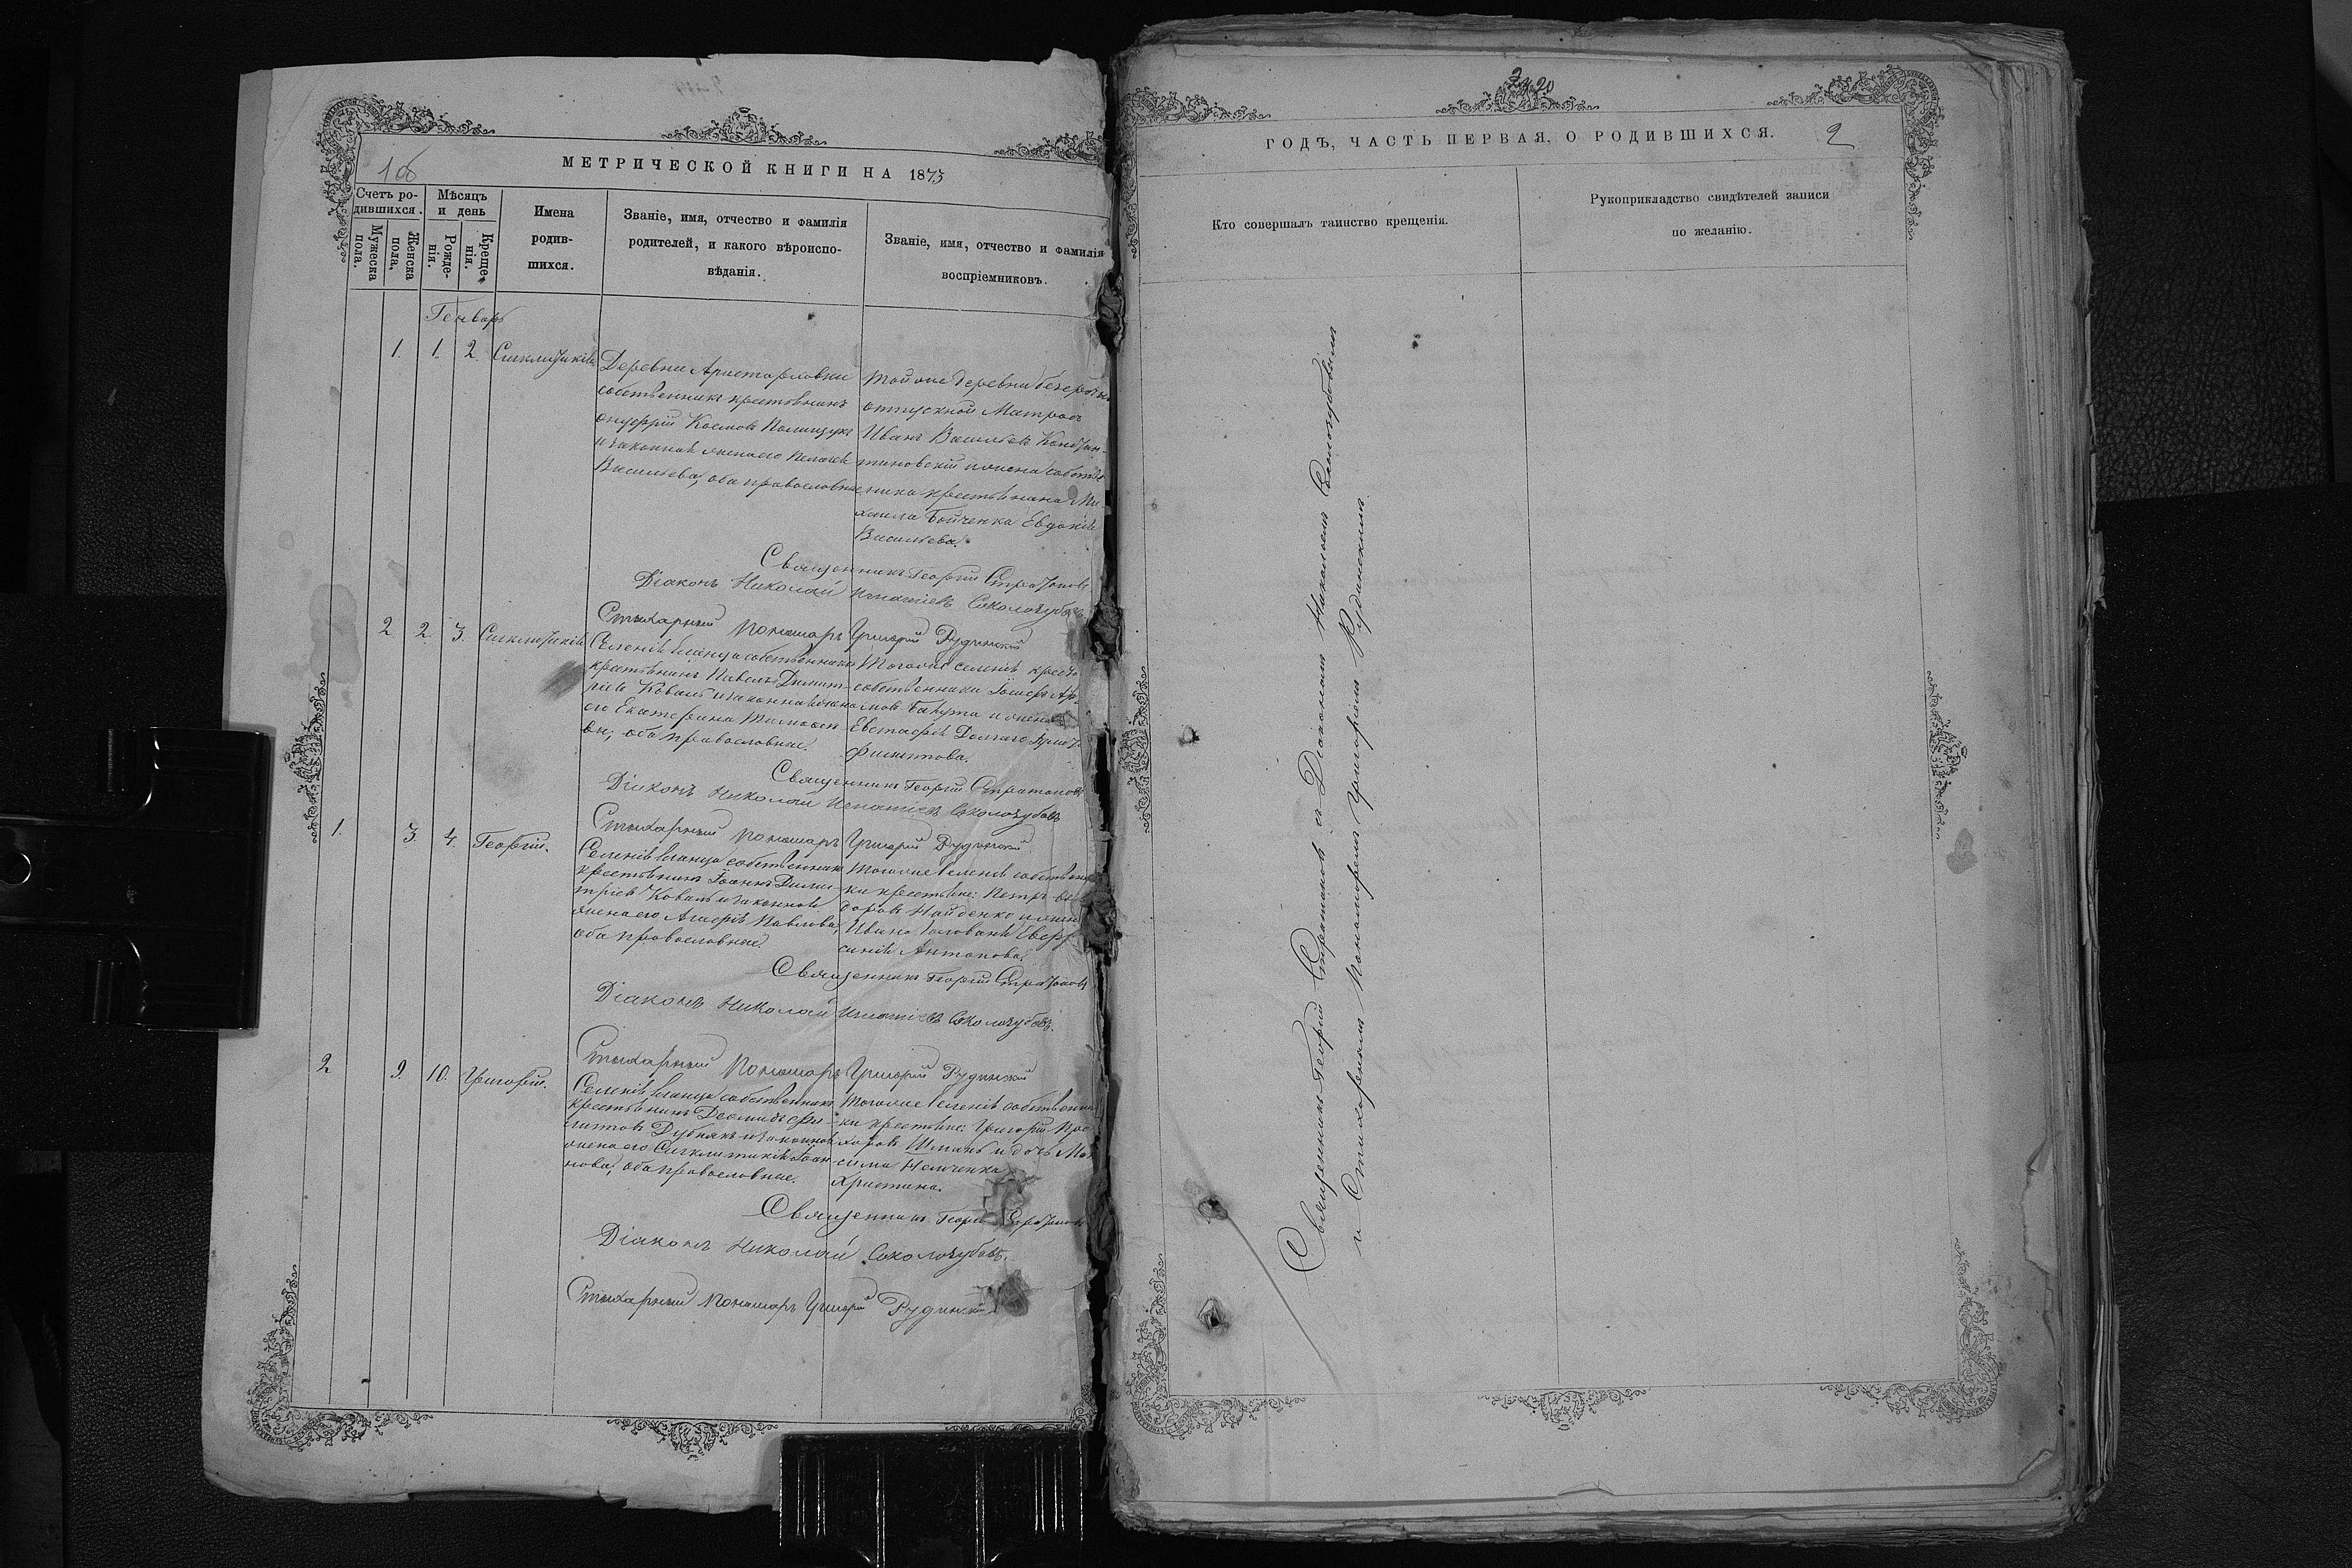 МЕТРИЧЕСКОЙ КНИГИ НА 1873
Счетъ ро-
дившихся.
Мужеска
пола.
Женска
пола.
Мѣсяцъ
и день
Рожде-
нія.
Креще-
нія.
Имена
родив-
шихся.
Званіе, имя, отчество и фамилія
родителей, и какого вѣроиспо-
вѣданія.
Званіе, имя, отчество и фамилія
воспріемниковъ.
Генварь
1. 1. 2. Сигклитикія
Деревни Аристарховки
собственникъ крестьянинъ
Онуфрій Космовъ Полищукъ
и законная жена его Пелагея
Васильева, оба православные
Той же деревни
отпускной Матросъ
Иванъ Васильевъ Констан-
тиновскій и жена собств
ника крестьянина Ми-
хаила Бойченка Евдокія
Васильева.
Священникъ Георгій Стратоновъ
Діаконъ Николай Игнатіевъ Сокологубовъ
Стихарный Пономарь Григорій Рудинскій
2. 2. 3. Сигклитикія
Селенія собственникъ
крестьянинъ Павелъ Димит-
ріевъ Коваль и законная жена
его Екатерина Тимофее-
ва, оба православные.
Того же селенія
собственники
и жена
Евстафія
Филиппова.
Священникъ Георгій Стратоновъ
Діаконъ Николай Игнатіевъ Сокологубовъ
Стихарный Пономарь Григорій Рудинскій
1. 3. 4. Георгій.
Селенія собственникъ
крестьянинъ Іоаннъ Дими-
тріевъ Коваль и законная
жена его Агафія Павлова,
оба православные.
Того же селенія собственни-
ки крестьяне: Петръ
Найденко и жена
Ивана Голована Евфро-
синія Антонова.
Священникъ Георгій Стратоновъ
Діаконъ Николай Игнатіевъ Сокологубовъ.
Стихарный Пономарь Григорій Рудинскій
2 9. 10. Григорій.
Селенія собственникъ
крестьянинъ
Дубнякъ и законная
жена его Сигклитикія Іоан-
нова, оба православные.
Того же селенія собственни-
ки крестьяне: Григорій Про-
хоровъ и дочь Мак-
сима Немченка
Христина.
Священникъ Георгій Стратоновъ
Діаконъ Николай Сокологубовъ.
Стихарный Пономарь Григорій Рудинскій
ГОДѢ, ЧАСТЬ ПЕРВАЯ, О РОДИВШИХСЯ.
2
Кто совершалъ таинство крещенія.
Рукоприкладство свидѣтелей записи
по желанію.
Священникъ Георгій Стратоновъ съ Діакономъ Николаемъ Сокологубовымъ
и Стихарнымъ Пономаремъ Григоріемъ Рудинскимъ